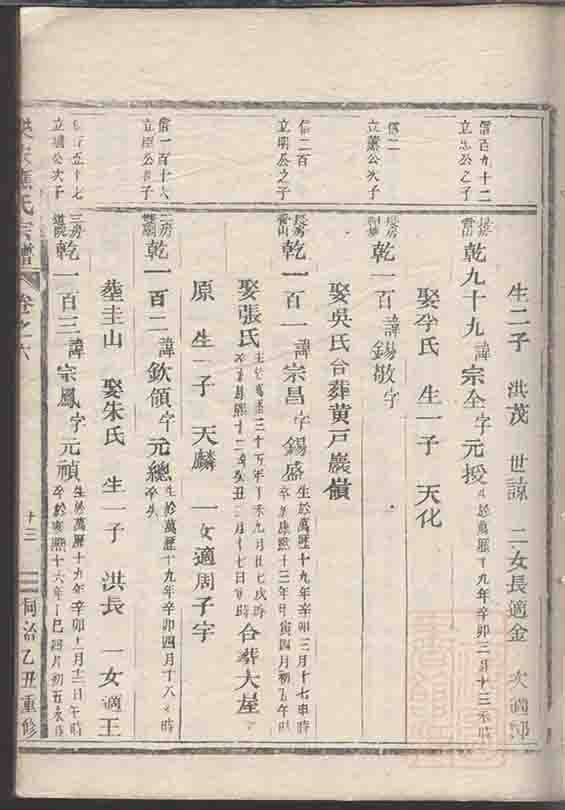 生二子 洪茂 世諒 二女長適金 次適鄧
信百九十二
立忠公之子
長房
雷山
乾九十九諱宗全字元授
生於萬曆十九年辛卯三月十三未時
娶李氏 生一子 天化
信二
立蕭公次子
長房
乾一百諱錫敬字
娶吳氏合葬黄戸巖嶺
信二百
立明公之子
長房
雷山
乾一百一諱宗昌字錫盛
生於萬曆十九年辛卯三月十七申時
卒於康熙十三年甲寅四月初五午時
娶張氏
生於萬曆三十五年丁未九月廿七戌時
卒於康熙十二年癸丑二月十七日 時
合葬大屋
原 生一子 天麟 一女適周子宇
信一百十六
立 公 子
二房
乾一百二諱欽領字元總
生於萬曆十九年辛卯四月十八 時
卒失
塟圭山 娶朱氏 生一子 洪長 一女適王
立 公次子
三房
乾一百三諱宗鳳字元禎
生於萬曆十九年辛卯 月十二日午時
卒於康熙十六年丁巳四月初五 時
氏宗譜 卷之六 十三 同治乙丑重修